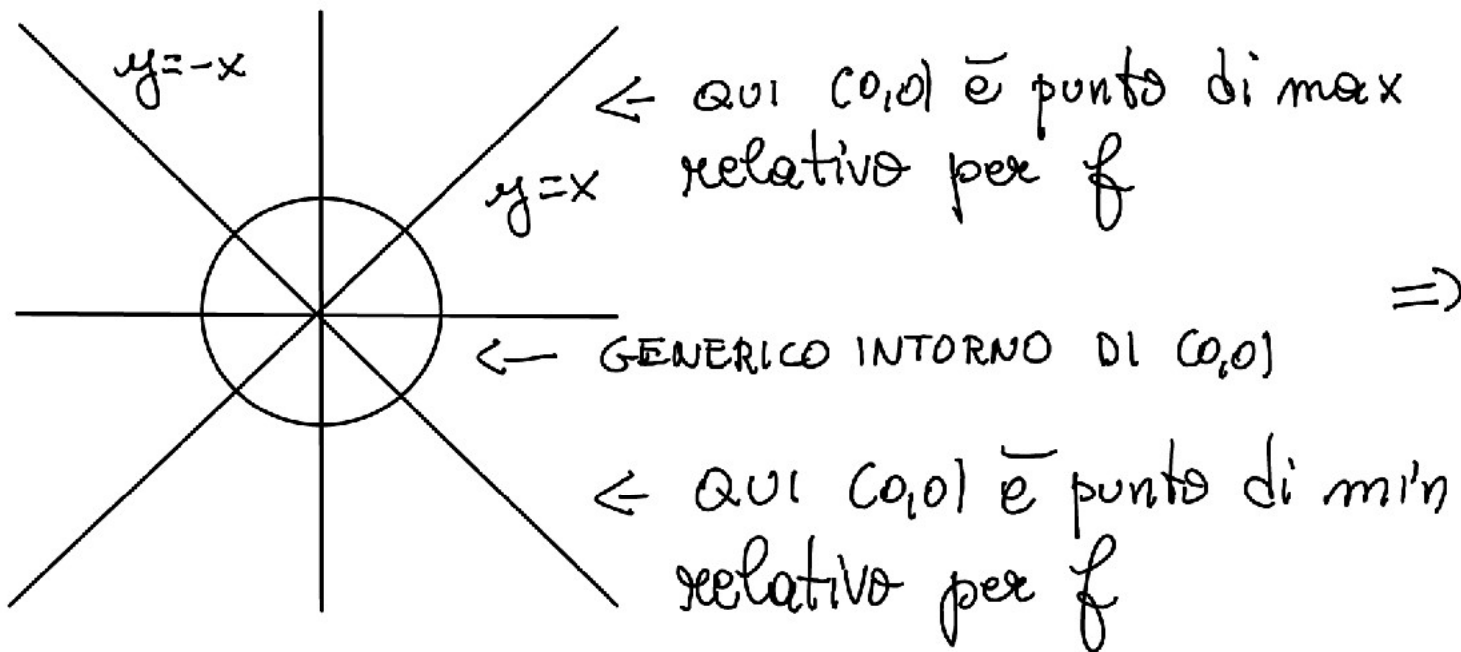 y=-x
← QUI (0,0) ē punto di max
relativo per f
y=x
⇒
← GENERICO INTORNO DI (0,0)
← QUI (0,0) ē punto di min
relativo per f